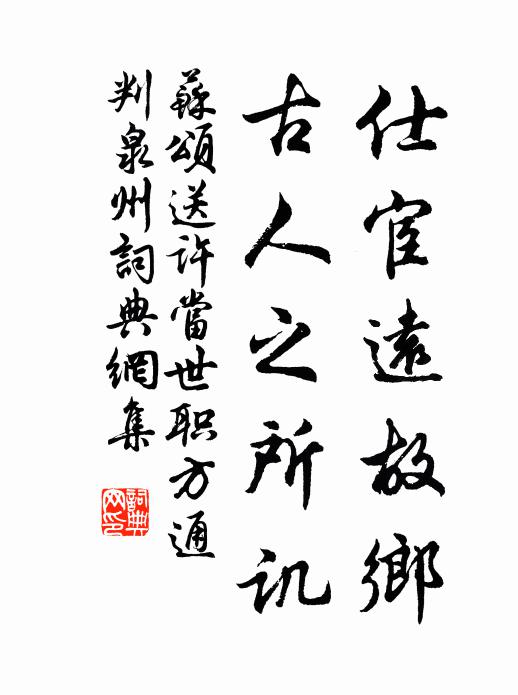 仕宦遠故鄉
古人之所讥
蘇頌送許當世职方通
判泉州詞典網集
詞典网印